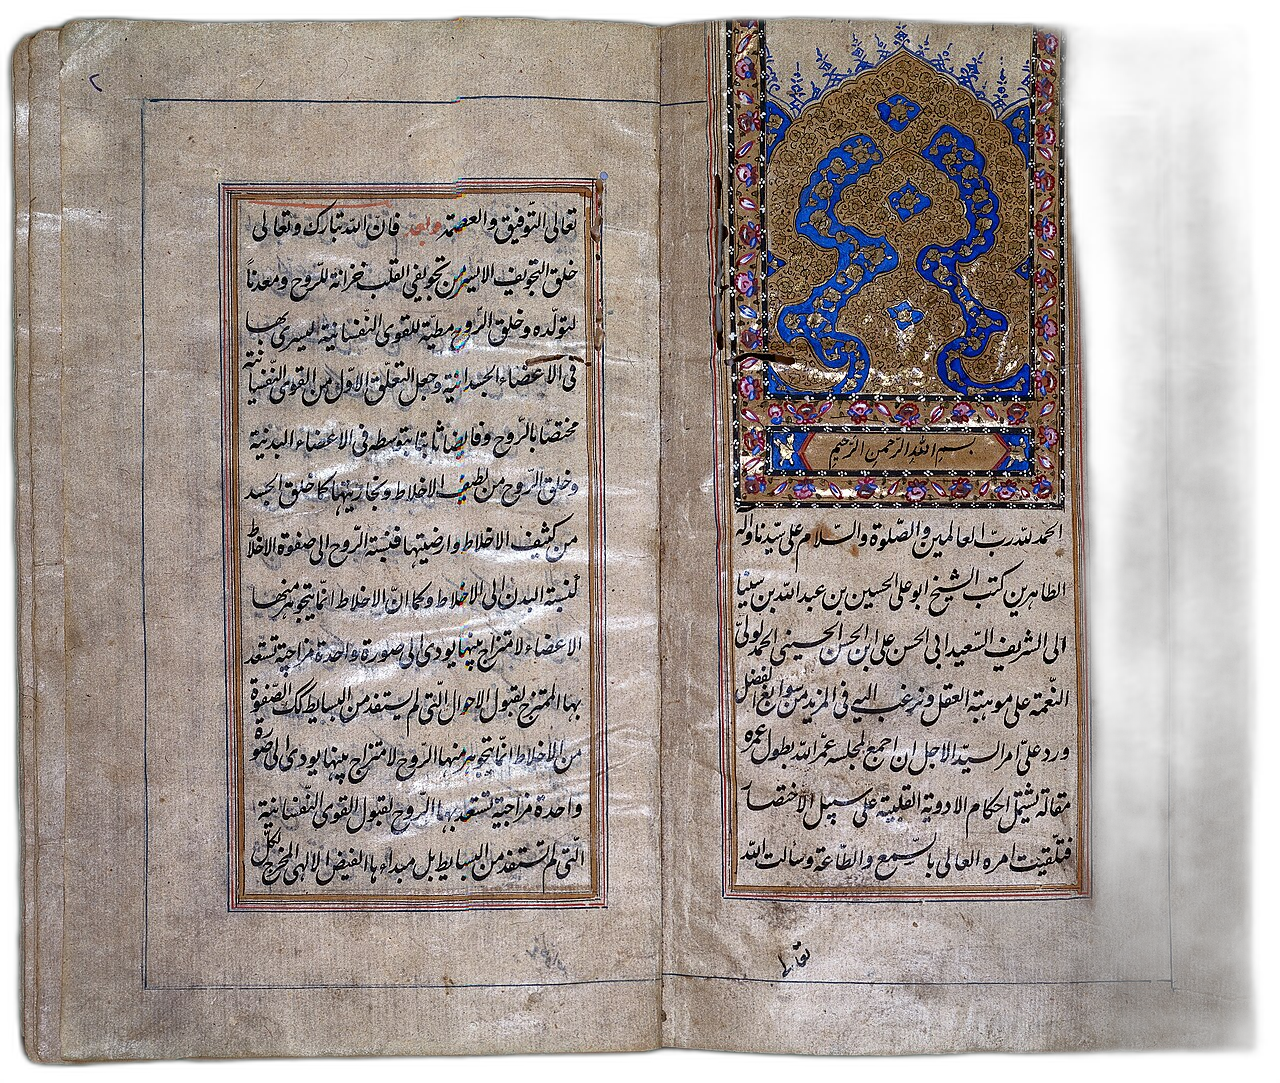 بسم الله الرحمن الرحيم
الحمد لله رب العالمين والصلوة والسلام على سيدنا وآله
الطاهرين كتب الشيخ ابو على الحسين بن عبد الله بن سينا
الى الشريف السعيد ابى الحسن على ابن الحسن الحسينى الحمد لولى
النعمة على موهبة العقل ونرغب اليه فى المزيد من سوابغ الفضل
ورد على امر السيد الاجل ان اجمع لمجلسه عمر الله بطول عمره
مقالة يشتمل احكام الادوية القلبية على سبيل الاختصار
فتلقيت امره العالى بالسمع والطاعة وسألت الله
تعالى
٢
تعالى التوفيق والعصمة وبعد فان الله تبارك وتعالى
خلق التجويف الايسر من تجويفى القلب خزانة للروح ومعدنا
لتولده وخلق الروح مطية للقوى النفسانية ليسرى بها
فى الاعضاء الجسدانية وجعل التعلق الاول من القوى النفسانية
مختصا بالروح وفايضا ثانيا بتوسطه فى الاعضاء البدنية
وخلق الروح من لطيف الاخلاط وبخاريتها كما خلق الجسد
من كثيف الاخلاط وارضيتها فنسبة الروح الى صفوة الاخلاط
كنسبة البدن الى الاخلاط وكما ان الاخلاط انما يتجوهر منها
الاعضاء لامتزاج بينها يودى الى صورة واحدة مزاجية تستعد
بها الممتزج لقبول الاحوال التى لم يستفد من البسايط كك الصفوة
من الاخلاط انما يتجوهر منها الروح لامتزاج بينها يودى الى صورة
واحدة مزاجية تستعد بها الروح لقبول القوى النفسانية
التى لم تستفد من البسايط بل مبداء ها الفيض الالهى المخرج لكل